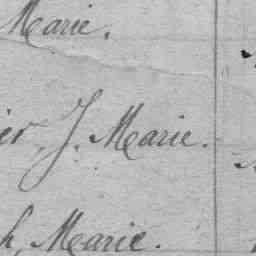 Marie.
J. Marie.
h, Marie.